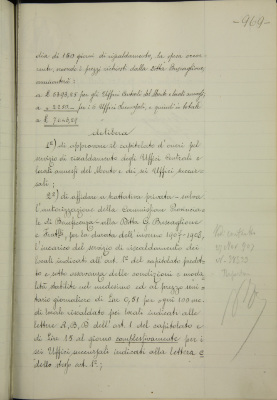 -969-
dia di 180 giorni di riscaldamento, la spesa occor-
rente, secondo i prezzi richiesti dalla Ditta
ammonterà:
a £ per gli Uffici Centrali del Monte e locali annessi;
a " 2250 - per i 6 Uffici Succursali, e quindi in totale
a £
delibera
1º) di approvare il capitolato d'oneri pel
servizio di riscaldamento degli Uffici Centrali e
locali annessi del Monte e dei sei Uffici succur-
sali;
2º) di affidare a trattativa privata - salva
l'autorizzazione della Commissione Provincia-
le di Beneficenza - alla Ditta
e Fratelli, per la durata dell'inverno 1907-1908,
l'incarico del servizio di riscaldamento dei
locali indicati all'art. 1º del capitolato predet-
to e sotto osservanza delle condizioni e moda-
lità stabilite nel medesimo ed al prezzo uni-
tario giornaliero di Lire 0,51 per ogni 100 mc.
di locale riscaldato pei locali indicati alle
lettere A, B, dell'art. 1 del capitolato e
di Lire 25 al giorno complessivamente per i
sei Uffici succursali indicati alla lettera
dello stesso art. 1º;